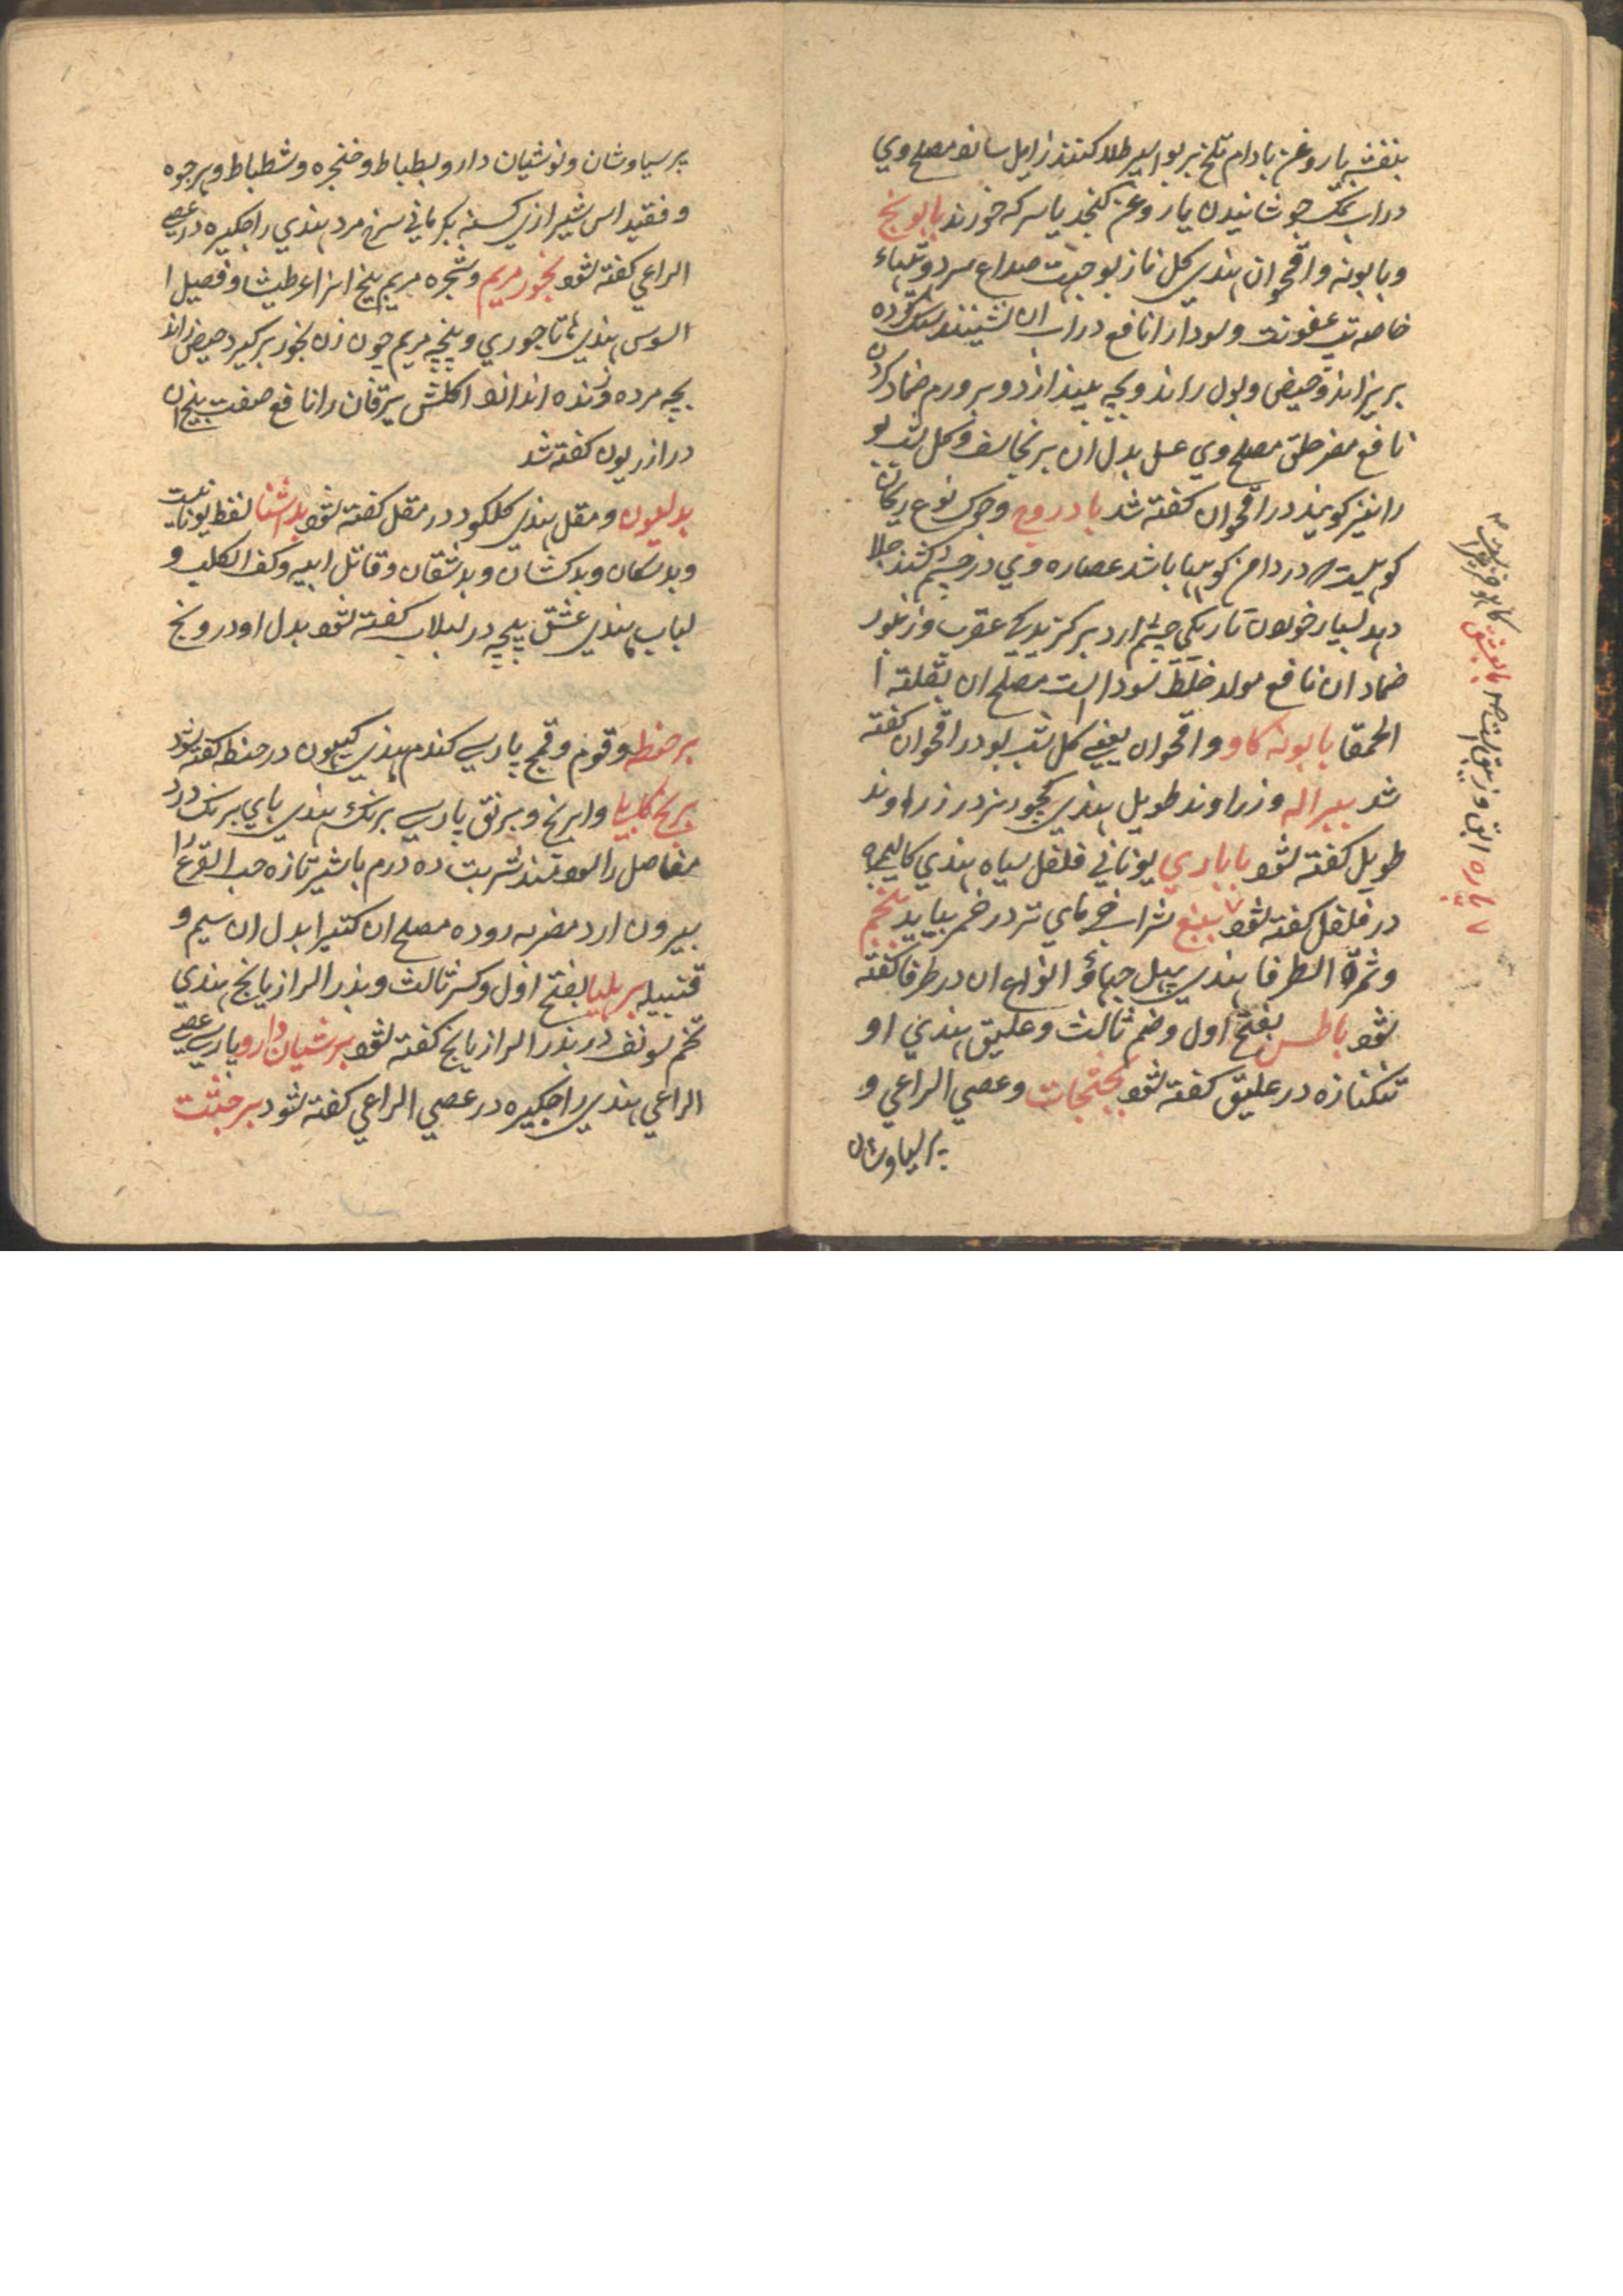 بنفشه با روغن بادام تلخ بر بواسیر طلا کنند زایل سازد مصلح وي
در اب نمک جوشانیدن یا روغن کنجد یا سرکه خورند بابونج
و بابونه و اقحوان هندي کل جهت صداع سرد و تبهاء
خاصه تب عفونت و سودا را نافع در اب ان نشینند سنک کرده
بریزاند و حیض و بول راند و بچه بیندازد و بر ورم ضماد کردن
نافع مضر حلق مصلح وي عسل بدل ان برنجاسف و کل شب بو
را نیز کویند در اقحوان کفته شد بادروج و حوک نوع ریحان
کوهیست در دامن کوهها باشد عصاره وي در چشم کشند جلا
دهد بسیار خوردن تاریکي چشم ارد بر کزیدکي عقرب و زنبور
ضماد ان نافع مولد خلط سودا است مصلح ان بقلة ا
لحمقا بابونه کاو و اقحوان یعني کل شب بو در اقحوان کفته
شد و زراوند طویل هندي در زراوند
طویل کفته شود باباري یوناني فلفل سیاه هندي کالیمرچ
در فلفل کفته شود شراب خرماي تر در خمر بیاید
و ثمرة الطرفا هندي جهاؤ انواع ان در طرفا کفته
شود باطس بفتح اول و ضم ثالث و علیق هندي او
در علیق کفته شود و عصي الراعي و
پرسیاوشان
پاره ابق و زیبق است بابونق کافور
پرسیاوشان و نوشیان دارو و بطباط و خنجره و شطباط و پرجوه
و فقید اس شیرازي بکرماني سرخ مرد هندي راجکیره در عصي
الراعي کفته شود بخور مریم و شجره مریم بیخ انرا عرطنیثا و فصیل ا
لسوس هندي هاتاجوري و پنجه مریم چون زن بخور بر کیرد حیض راند
بچه مرده و زنده اندازد اکلش یرقان را نافع صفت بیخ ان
در اذریون کفته شد
بدلیون و مقل هندي کلکود در مقل کفته شود بداشنا لفظ یونانیست
و بدسکان و بدکشان و بدشقان و قاتل ابیه و کف الکلب و
لباب هندي عشق پیچه در لبلاب کفته شود بدل او درونج
بر حنطه و قوم و قمح پارسي کندم هندي کیهون در حنطه کفته شود
برنج کابلیا و ابرنج و برنق پارسي برنک هندي باي برنک درد
مفاصل را سودمند شربت ده درم با شیر تازه حب القرع را
بیرون ارد مضر به روده مصلح ان کتیرا بدل ان سیم و
قنبیله برهلیا بفتح اول و کسر ثالث و بذر الرازیانج هندي
تخم سونف در بذر الرازیانج کفته شود برشیان دارو پارسي عصي
الراعي هندي راجکیره در عصي الراعي کفته شود